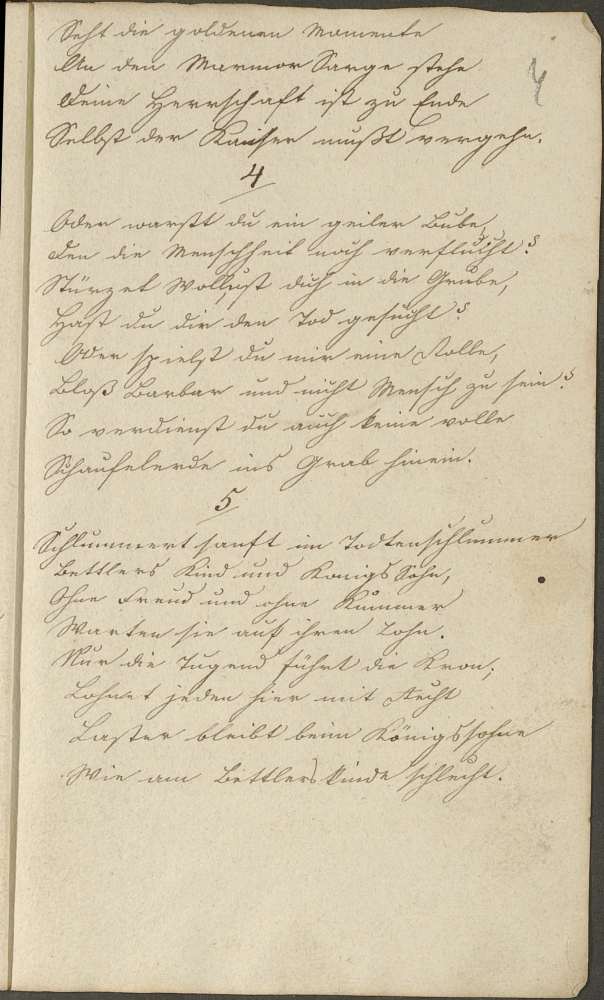 Seht die goldenen Momente
An den Marmor Sarge stehe
Deine Herrschaft ist zu Ende
Selbst der Kaiser mußt vergehn.
4
4
Oder warst du ein geiler Bube,
Den die Menschheit noch verflucht?
Stürzet Wollust dich in die Grube,
Hast du dir den Tod gesucht?
Oder spielst du mir eine Rolle,
Bloß Barbar und nicht Mensch zu sein?
So verdienst du auch keine volle
Schaufelerde ins Grab hinein.
5
Schlummert sanft im Todtenschlummer
Bettlers Kind und Königs Sohn,
Ohne Freud und ohne Kummer
Warten sie auf ihren Lohn.
Nur die Tugend führt die Kron;
Lohnet jeden hier mit Recht
Laster bleibt beim Königssohne
Wie am Bettlerskinde schlecht.